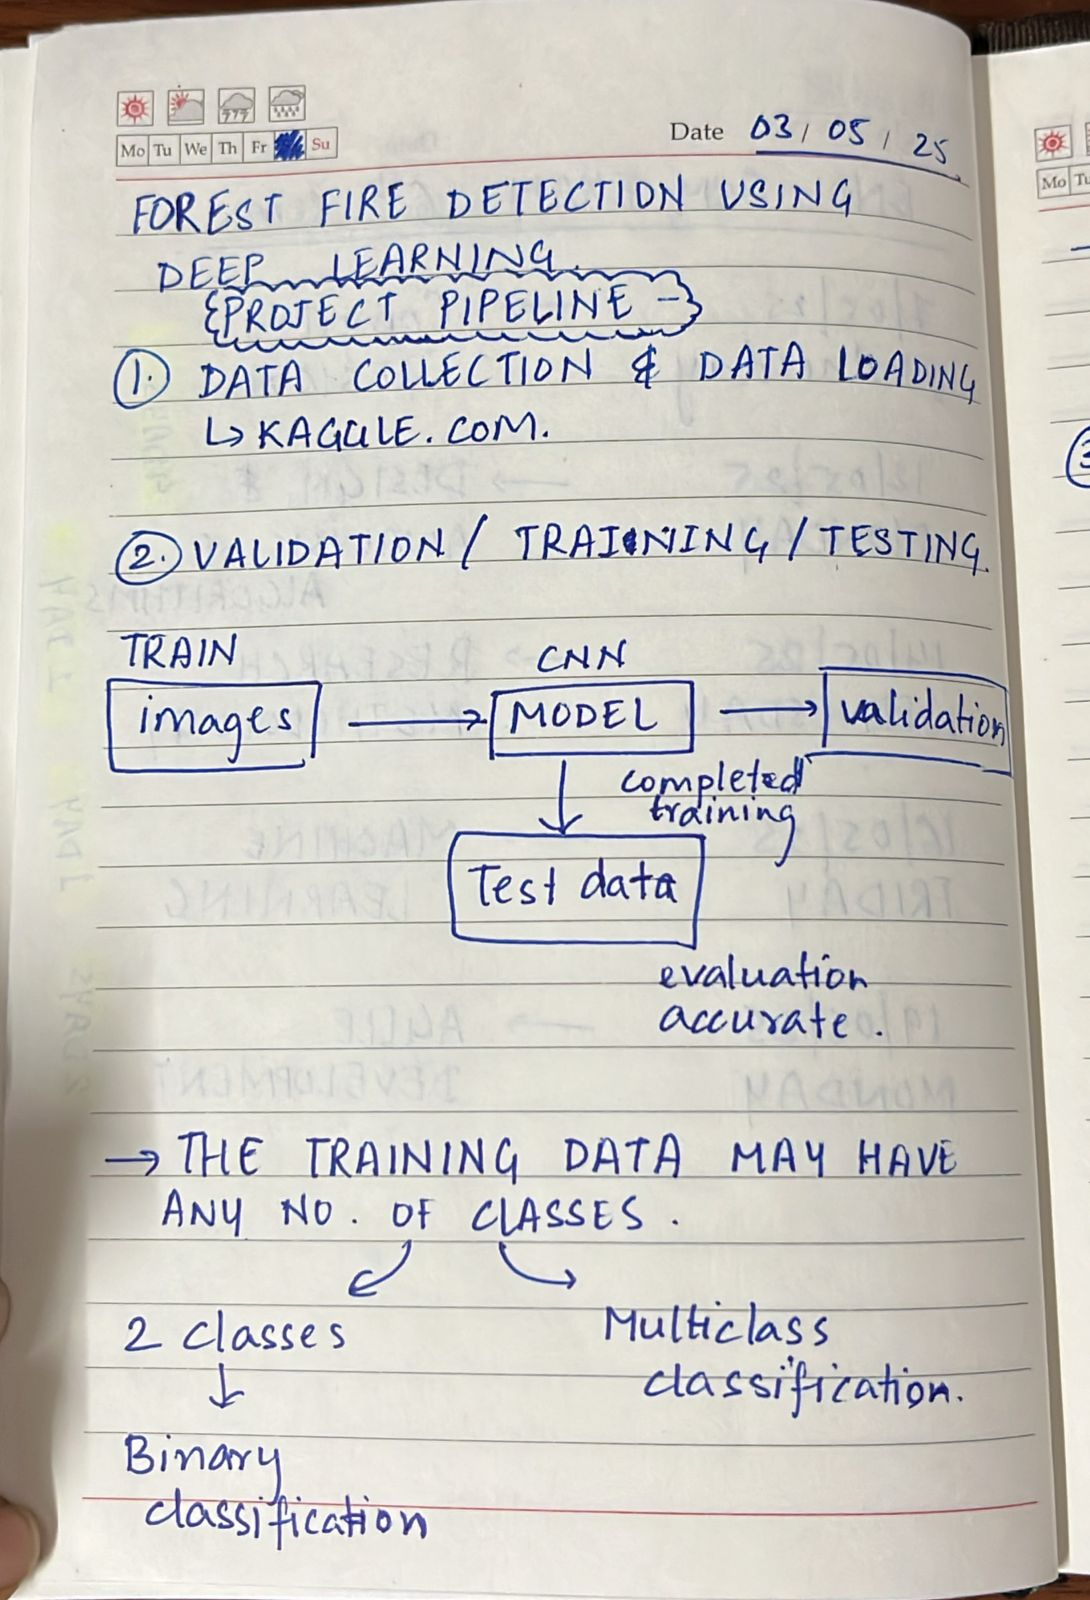 Mo Tu We Th Fr Su
Date 03/05/25
FOREST FIRE DETECTION USING
DEEP LEARNING.
PROJECT PIPELINE -
1. DATA COLLECTION & DATA LOADING
↳ KAGGLE.COM.
2. VALIDATION / TRAINING / TESTING.
TRAIN CNN
images → MODEL → validation
completed
training
Test data
evaluation
accurate.
→ THE TRAINING DATA MAY HAVE
ANY NO. OF CLASSES.
2 classes Multiclass
classification.
Binary
classification
Mo Tu
3